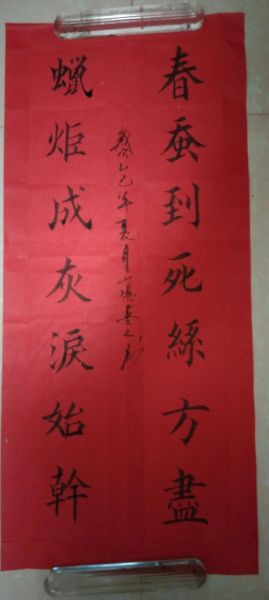 春蚕到死絲方盡
蠟炬成灰淚始幹
乙巳年夏月